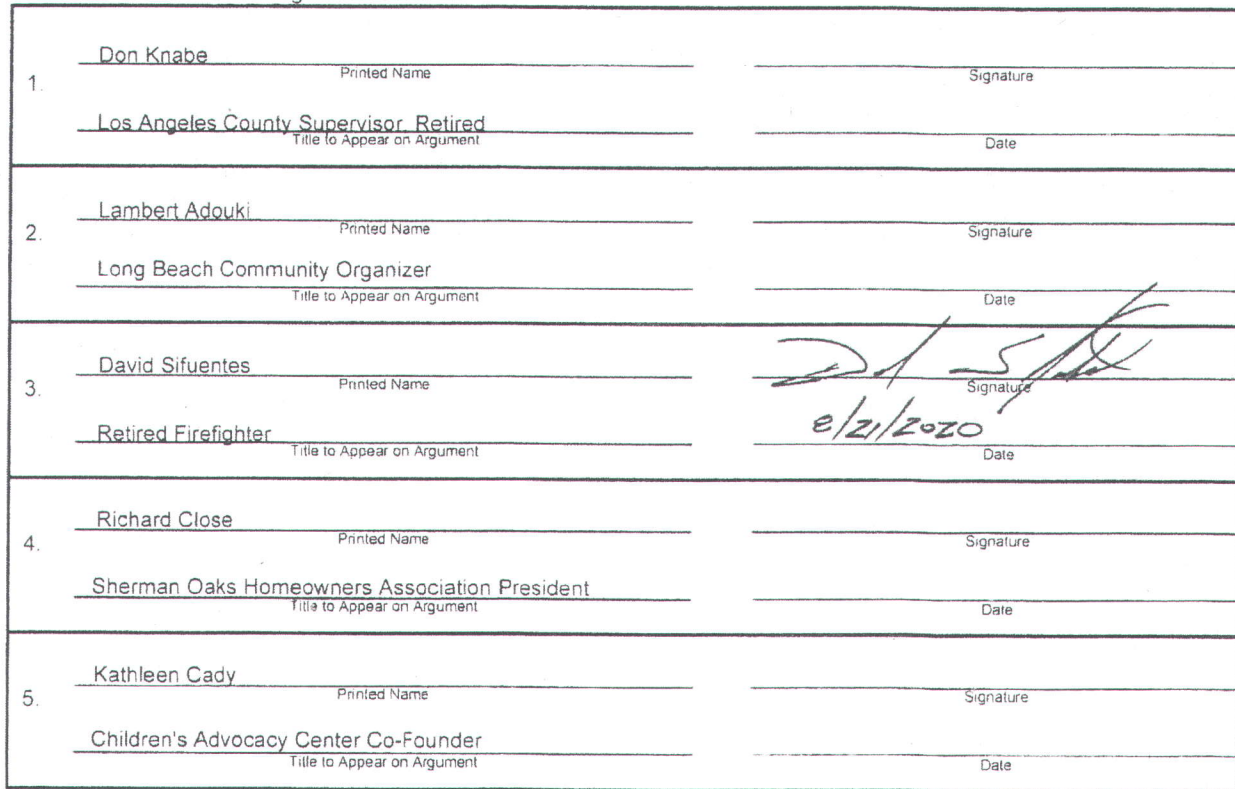 1.
Don Knabe
Printed Name Signature
Los Angeles County Supervisor, Retired
Title to Appear on Argument Date
2.
Lambert Adouki
Printed Name Signature
Long Beach Community Organizer
Title to Appear on Argument Date
3.
David Sifuentes
Printed Name Signature
Retired Firefighter 8/21/2020
Title to Appear on Argument Date
4.
Richard Close
Printed Name Signature
Sherman Oaks Homeowners Association President
Title to Appear on Argument Date
5.
Kathleen Cady
Printed Name Signature
Children's Advocacy Center Co-Founder
Title to Appear on Argument Date